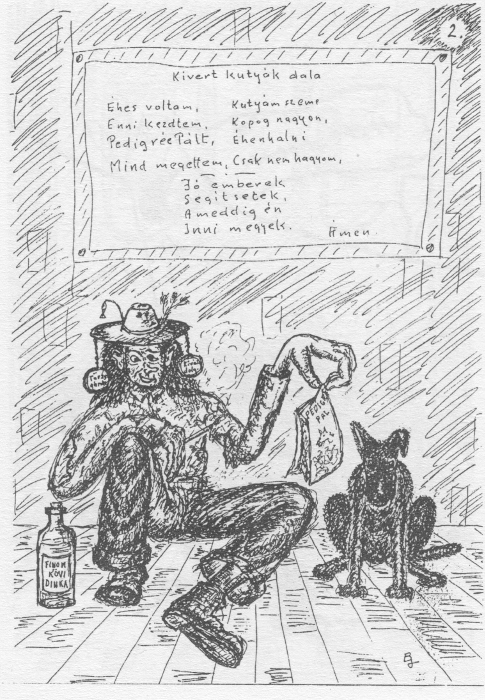 2.
Kivert Kutyák dala
Éhes voltam,
Enni kezdtem.
Pedigrée Pált,
Mind megettem,
Kutyám szeme
Kopog nagyon,
Éhenhalni
Csak nem hagyom,
Jó emberek
Segitsetek,
Ameddig én
Inni megyek.
Ámen.
PEDIGRE
PAL
FINOM
KÖVI
DINKA